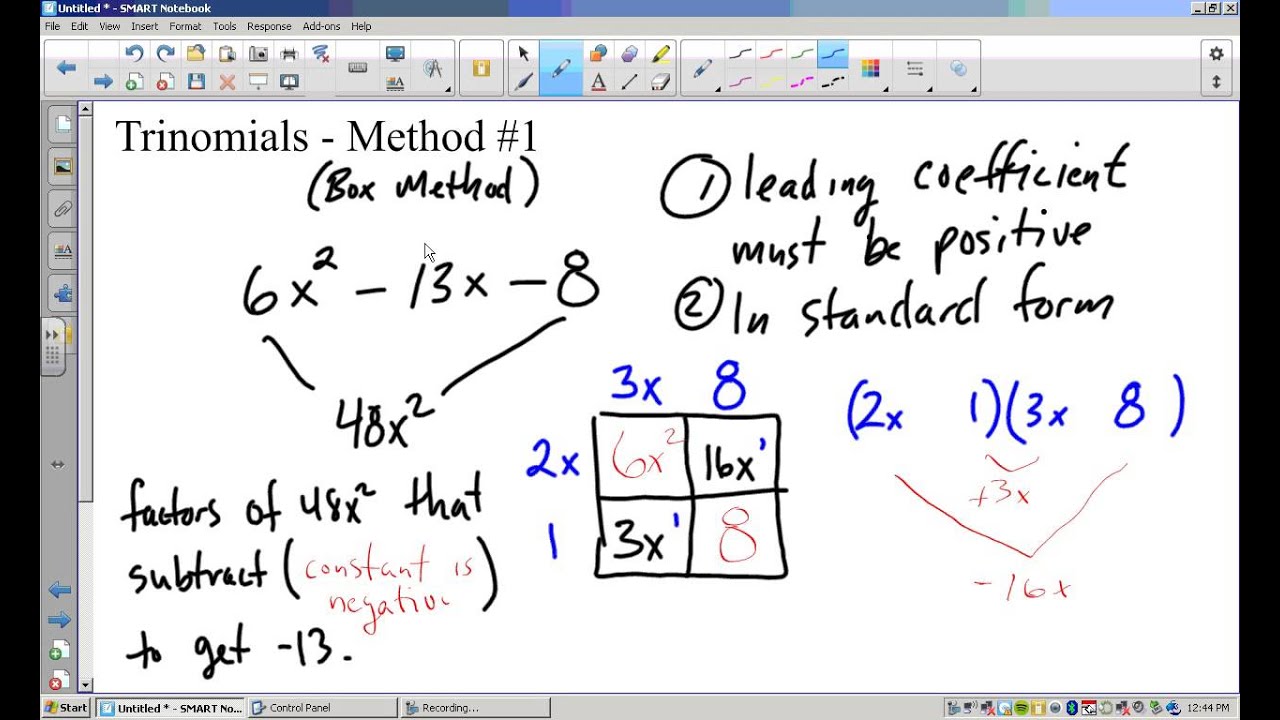 Untitled * - SMART Notebook
File Edit View Insert Format Tools Response Add-ons Help
Trinomials - Method #1
(Box Method)
6x² - 13x - 8
48x²
factors of 48x² that
subtract (constant is
negative)
to get -13.
① leading coefficient
must be positive
② In standard form
3x 8
2x 6x² 16x'
1 3x' 8
(2x 1)(3x 8 )
+3x
-16x
Start Untitled * - SMART No... Control Panel Recording... 12:44 PM